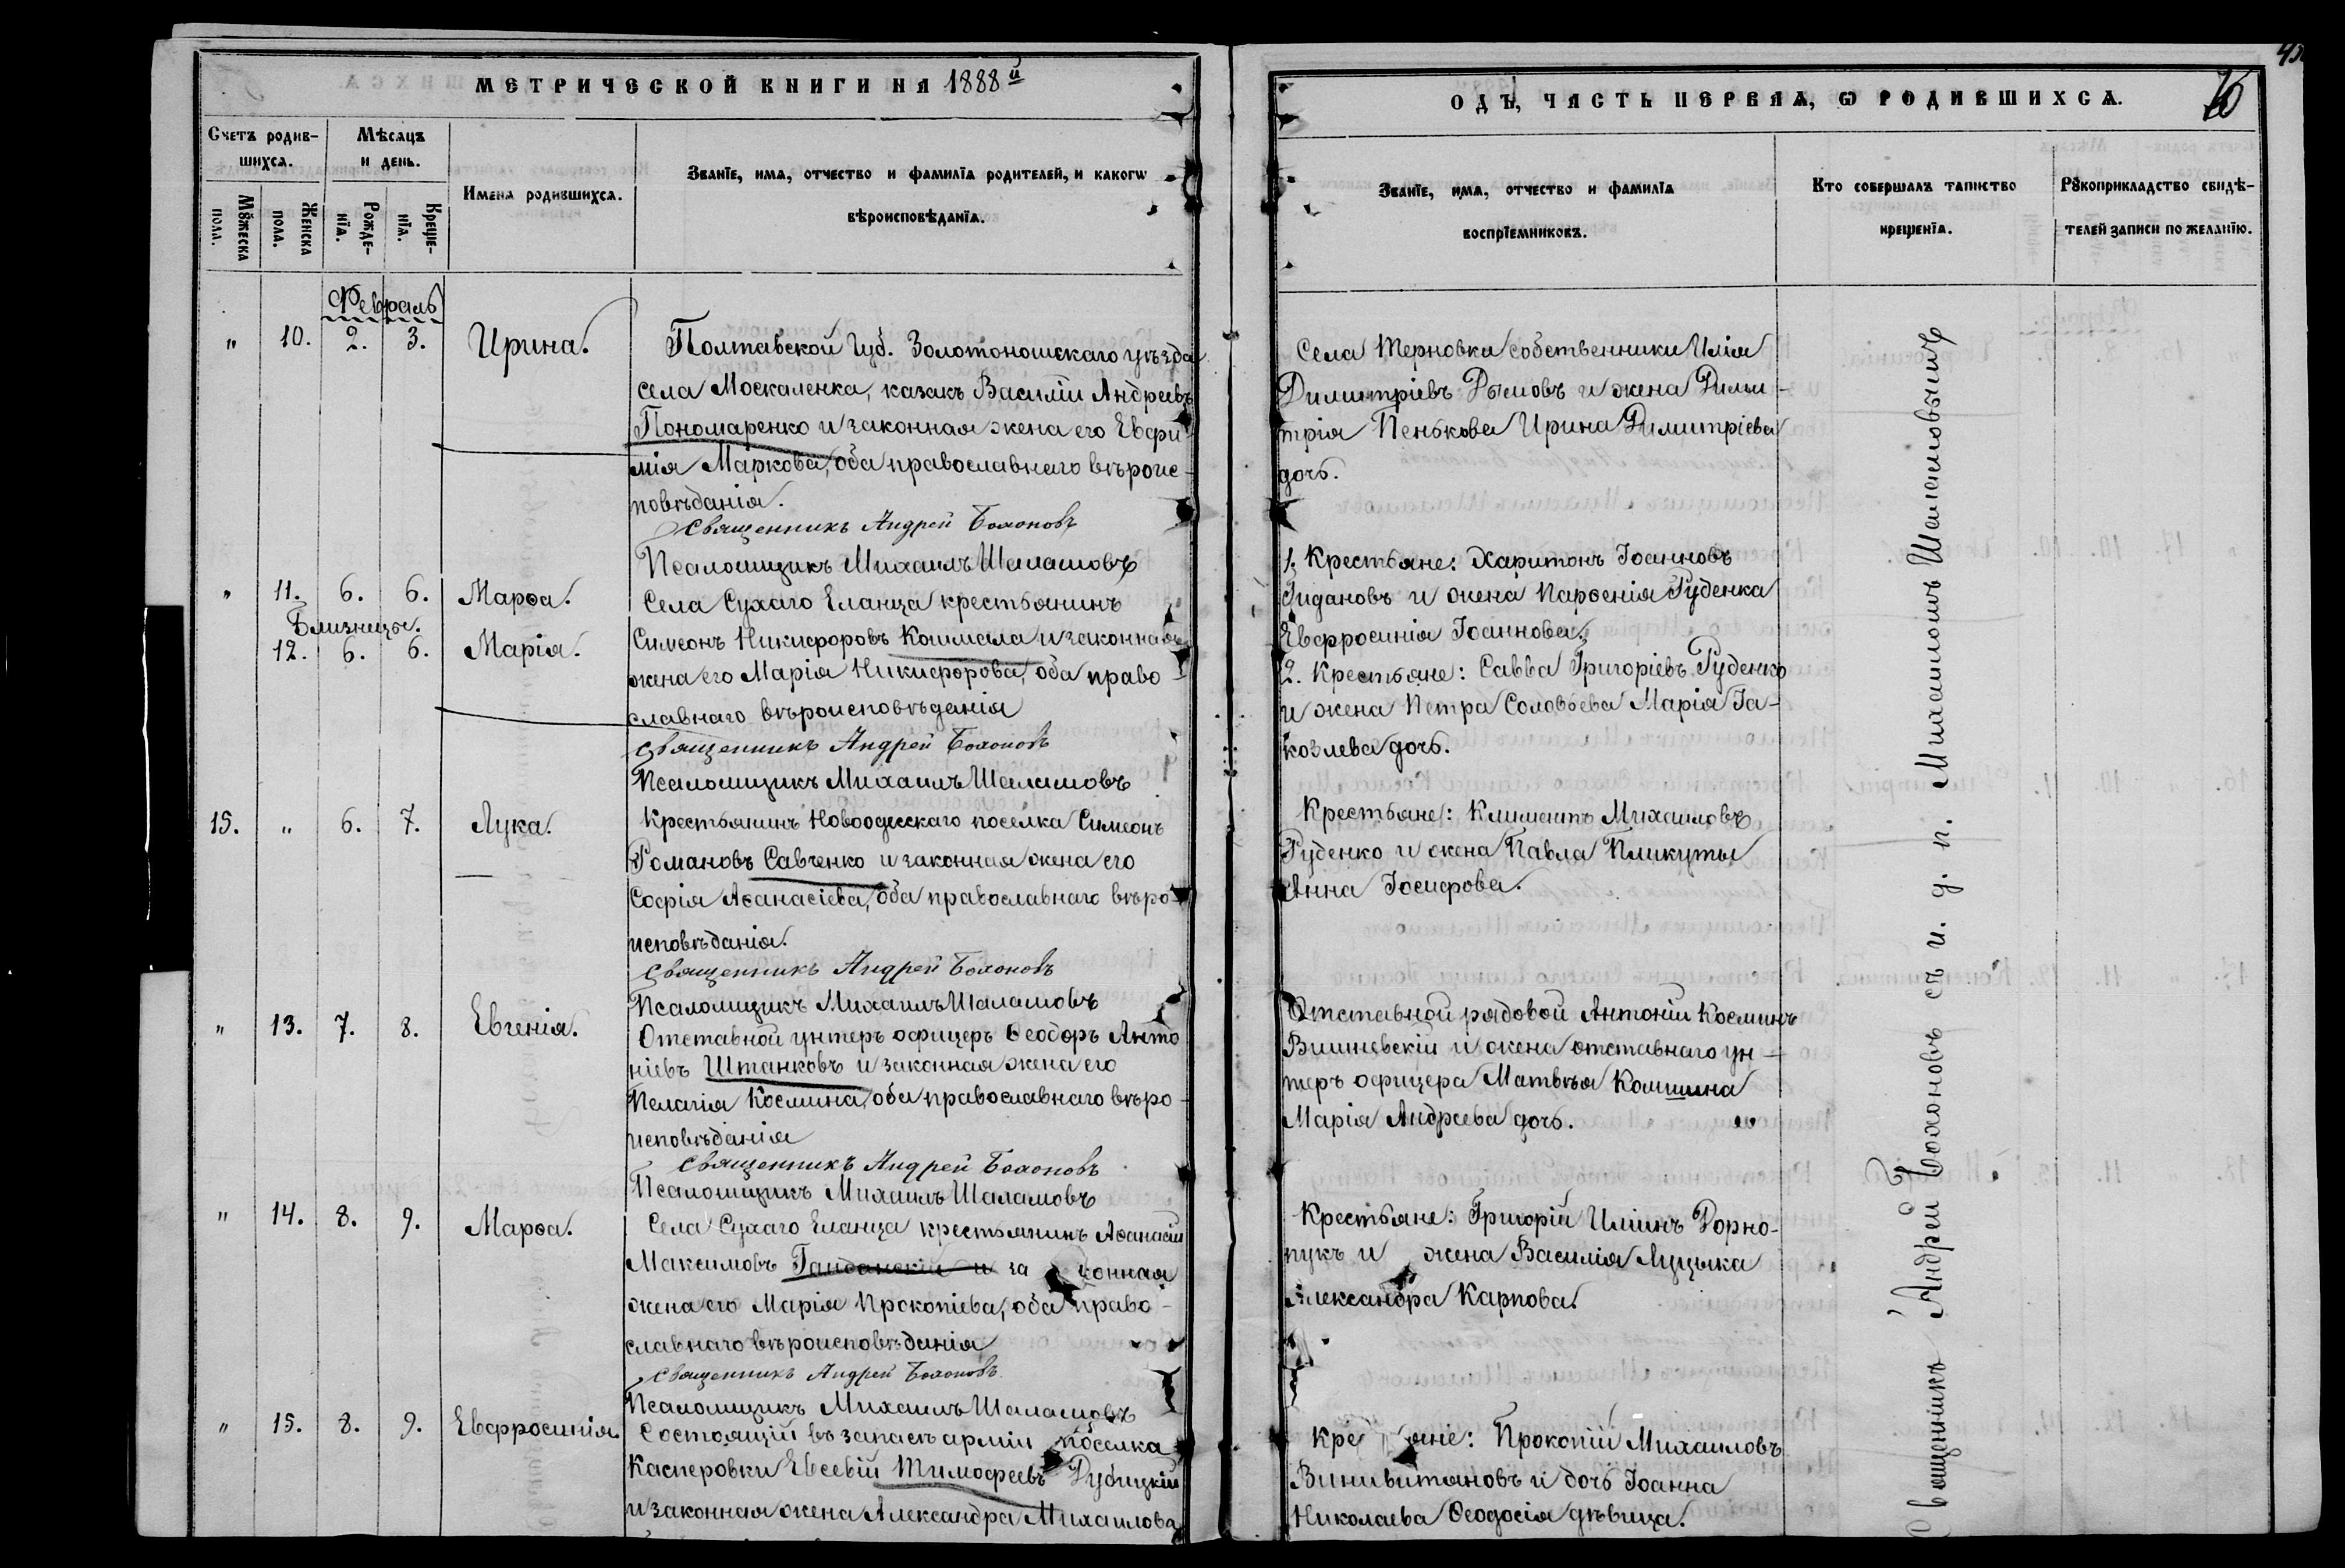 МЕТРИЧЕСКОЙ КНИГИ НА 1888й
Счетъ родив-
шихся.
Мѣсяцъ
и день.
Мꙋжеска
пола.
Женска
пола.
Рожде-
нїя.
Креще-
нїя.
Имена родившихся.
Званїе, имя, отчество и фамилїя родителей, и какогѡ
вѣроисповѣданїя.
Февраль
" 10. 2. 3. Ирина.
Полтавской Губ. Золотоношскаго уѣзда
села Москаленка, казакъ Василій Андреевъ
Пономаренко и законная жена его Евфи-
мія Маркова, оба православнаго вѣроис-
повѣданія.
Священникъ Андрей Болоновъ
Псаломщикъ Михаилъ Шаламовъ
" 11. 6. 6. Марѳа.
Близнецы.
12. 6. 6. Марія.
Села Сухаго Еланца крестьянинъ
Симеонъ Никифоровъ Кошмела и законная
жена его Марія Никифорова, оба право-
славнаго вѣроисповѣданія
Священникъ Андрей Болоновъ
Псаломщикъ Михаилъ Шаламовъ
15. " 6. 7. Лука.
Крестьянинъ Новоодесскаго поселка Симеонъ
Романовъ Савченко и законная жена его
Софія Аѳанасіева, оба православнаго вѣро-
исповѣданія.
Священникъ Андрей Болоновъ
Псаломщикъ Михаилъ Шаламовъ
" 13. 7. 8. Евгенія.
Отставной унтеръ офицеръ Ѳеодоръ Анто
ніевъ Штанковъ и законная жена его
Пелагія Космина, оба православнаго вѣро-
исповѣданія
Священникъ Андрей Болоновъ
Псаломщикъ Михаилъ Шаламовъ
" 14. 8. 9. Марѳа.
Села Сухаго Еланца крестьянинъ Аѳанасій
Максимовъ Гайданскій и за конная
жена его Марія Прокопіева, оба право-
славнаго вѣроисповѣданія
Священникъ Андрей Болоновъ
Псаломщикъ Михаилъ Шаламовъ
" 15. 8. 9. Евфросинія
Состоящій въ запасѣ арміи поселка
Касперовки Евсевій Тимофеевъ Дубицкій
и законная жена Александра Михаилова
ОДЪ, ЧАСТЬ ПЕРВАЯ, Ѡ РОДИВШИХСЯ.
Званїе, имя, отчество и фамилїя
воспрїемниковъ.
Кто совершалъ таинство
крещенїя.
Рꙋкоприкладство свидѣ-
телей записи по желанїю.
Села Терновки собственники Илія
Димитріевъ Дымовъ и жена Дими-
трія Пенькова Ирина Димитріева
дочь.
1. Крестьяне: Харитонъ Іоанновъ
Гидановъ и жена Парѳенія Руденка
Евфросинія Іоаннова.
2. Крестьяне: Савва Григоріевъ Руденко
и жена Петра Соловьева Марія Іа-
ковлева дочь.
Крестьяне: Климентъ Михаиловъ
Руденко и жена Павла Пликуты
Анна Іосифова.
Отставной рядовой Антоній Косминъ
Вишневскій и жена отставнаго ун-
теръ офицера Матвѣя Комшина
Марія Андреева дочь.
Крестьяне: Григорій Иліинъ Дорно-
пукъ и жена Василія Луцыка
Александра Карпова.
Кре яне: Прокопій Михаиловъ
Винивитановъ и дочь Іоанна
Николаева Ѳеодосія дѣвица.
Священникъ Андрей Болоновъ съ и. д. п. Михаиломъ Шаламовымъ